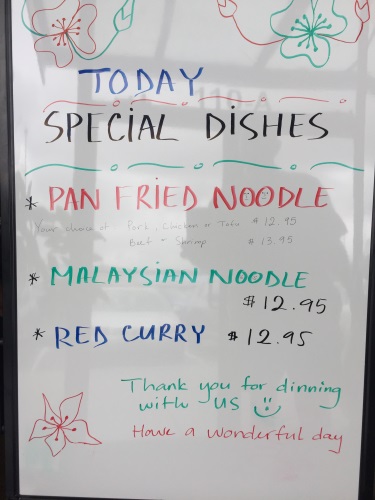 TODAY
SPECIAL DISHES
* PAN FRIED NOODLE
Your choice of Pork, Chicken or Tofu $12.95
Beef or Shrimp $13.95
* MALAYSIAN NOODLE
$12.95
* RED CURRY $12.95
Thank you for dinning
with US
Have a wonderful day